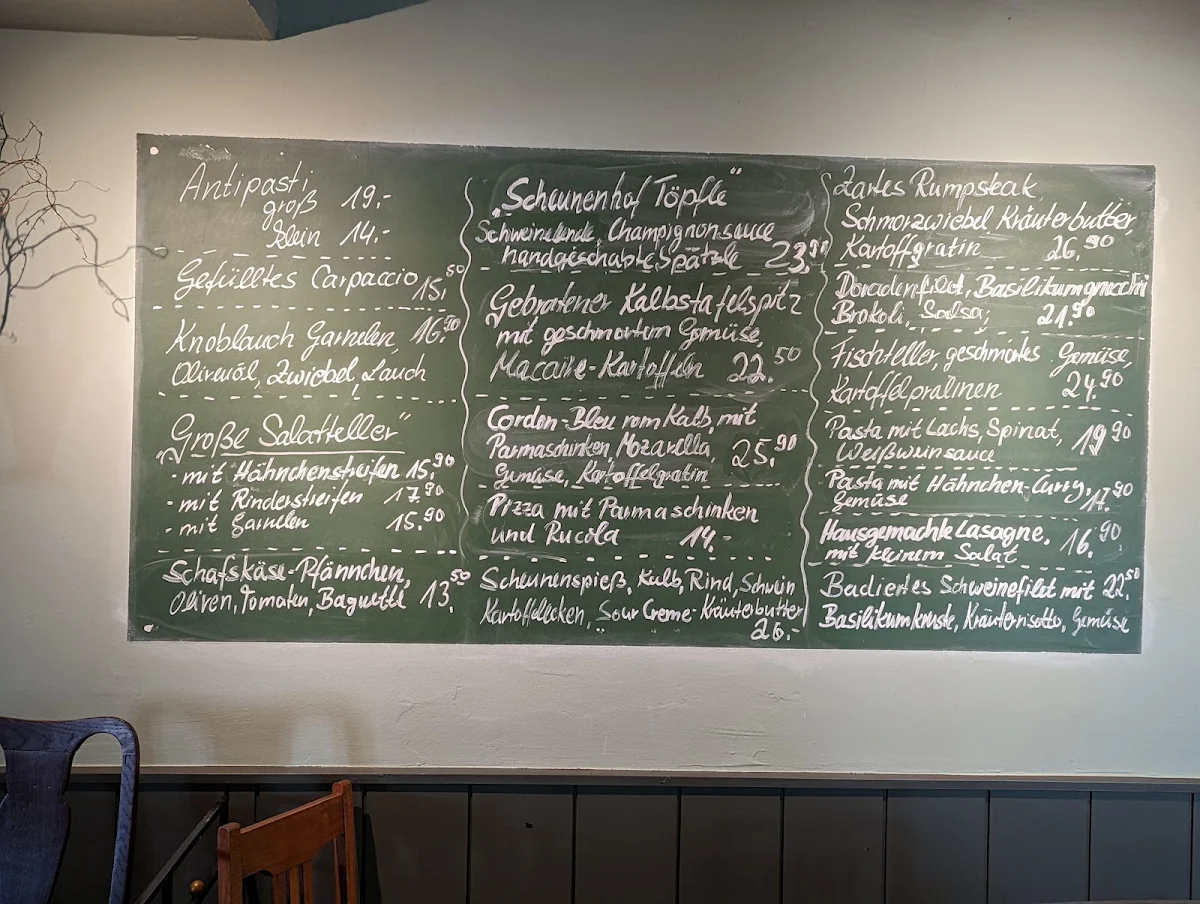 Antipasti
groß 19.-
klein 14.-
Gefülltes Carpaccio 15.50
Knoblauch Garnelen, 16.90
Olivenöl, Zwiebel, Lauch
„Große Salatteller“
- mit Hähnchenstreifen 15.90
- mit Rinderstreifen 17.90
- mit Garnelen 15.90
Schafskäse-Pfännchen,
Oliven, Tomaten, Baguette 13.50
„Scheunenhof Töpfle“
Schweinelende, Champignonsauce
handgeschabte Spätzle 23.90
Gebratener Kalbstafelspitz
mit geschmortem Gemüse,
Macaire-Kartoffeln 22.50
Cordon-Bleu vom Kalb, mit
Parmaschinken, Mozarella,
Gemüse, Kartoffelgratin 25.90
Pizza mit Parmaschinken
und Rucola 14.-
Scheunenspieß, Kalb, Rind, Schwein
Kartoffelecken, Sour Creme-Kräuterbutter
26.-
Zartes Rumpsteak
Schmorzwiebel, Kräuterbutter,
Kartoffgratin 26.90
Doradenfilet, Basilikumgnocchi
Brokoli, Salsa, 21.90
Fischteller, geschmortes Gemüse,
Kartoffelpralinen 24.90
Pasta mit Lachs, Spinat, 19.90
Weißweinsauce
Pasta mit Hähnchen-Curry, 17.90
Gemüse
Hausgemachte Lasagne, 16.90
mit kleinem Salat
Badiertes Schweinefilet mit 22.50
Basilikumkruste, Kräuterrisotto, Gemüse